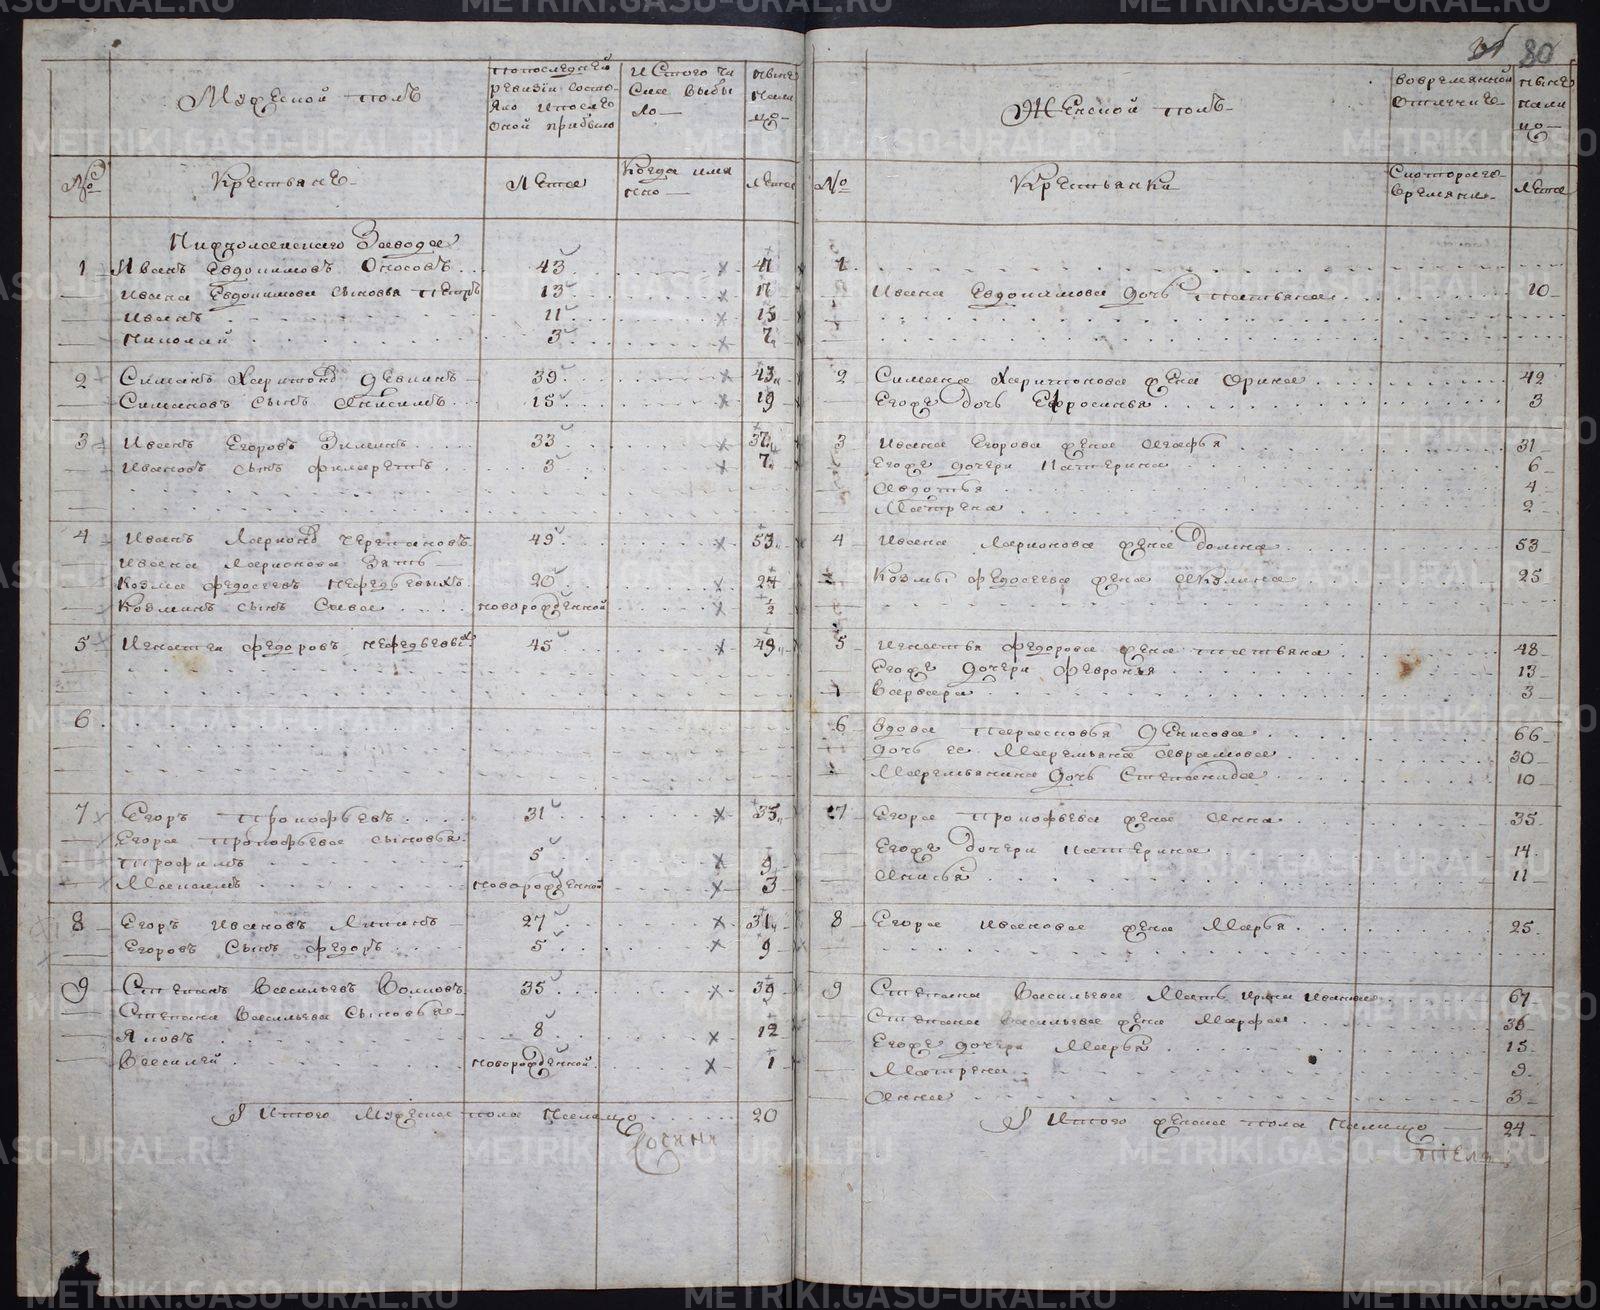 80
Мужеской полъ
по последней
ревизiи состо-
яло и после
оной прибыло
и Стого чи
сла выбы
ло
ныне
нали
цо
№
Крестьяне
Лета
Когда имя
нно
Лета
Нижнолсенскаго Завода
1 Иванъ Евдокимовъ Оносовъ 43 47
Ивана Евдокимова сыновья Петръ 13 17
Иванъ 11 15
Николай 3 7
2 Симанъ Харитоновъ Девинъ 39 43
Симановъ сынъ Анисимъ 15 19
3 Иванъ Егоровъ Зиминъ 33 37
Ивановъ сынъ Филаретъ 3 7
4 Иванъ Ларионовъ Черепановъ 49 53
Ивана Ларионова Зять
Козма Федосеевъ Нефедьевыхъ 20 24
Козминъ сынъ Савва новорожденной 2
5 Игнатей Федоровъ Нефедьевыхъ 45 49
6
7 Егоръ Прокофьевъ 31 35
Егора Прокофьева сыновья
Трофимъ 5 9
Максимъ новорожденной 3
8 Егоръ Ивановъ Липинъ 27 31
Егоровъ Сынъ Федоръ 5 9
9 Степанъ Васильевъ Волковъ 35 39
Степана Васильева Сыновья
Яковъ 8 12
Василей новорожденной 1
Итого Мужеска пола налицо 20
Женской полъ
вовремянной
отлучке
ныне
нали
цо
№
Крестьянки
Скоторого
времяни
Лета
1
Ивана Евдокимова дочь Татьяна 10
2 Симана Харитонова жена Орина 42
Егоже дочь Ефросинья 3
3 Ивана Егорова жена Агафья 31
Егоже дочери Катерина 6
Авдотья 4
Матрена 2
4 Ивана Ларионова жена Домна 53
Козмы Федосеева жена Акулина 25
5 Игнатья Федорова жена Татьяна 48
Егоже Дочери Февронья 13
Варвара 3
6 Вдова Парасковья Денисова 66
дочь ее Маремьяна Аврамова 30
Маремьянина Дочь Степанида 10
7 Егора Прокофьева жена Анна 35
Егоже дочери Катерина 14
Анисья 11
8 Егора Иванова жена Марья 25
9 Степана Васильева Мать Ирина Иванова 67
Степана Васильева жена Марфа 36
Егоже дочери Марья 15
Матрена 9
Анна 3
Итого женска пола налицо 24
METRIKI.GASO-URAL.RU